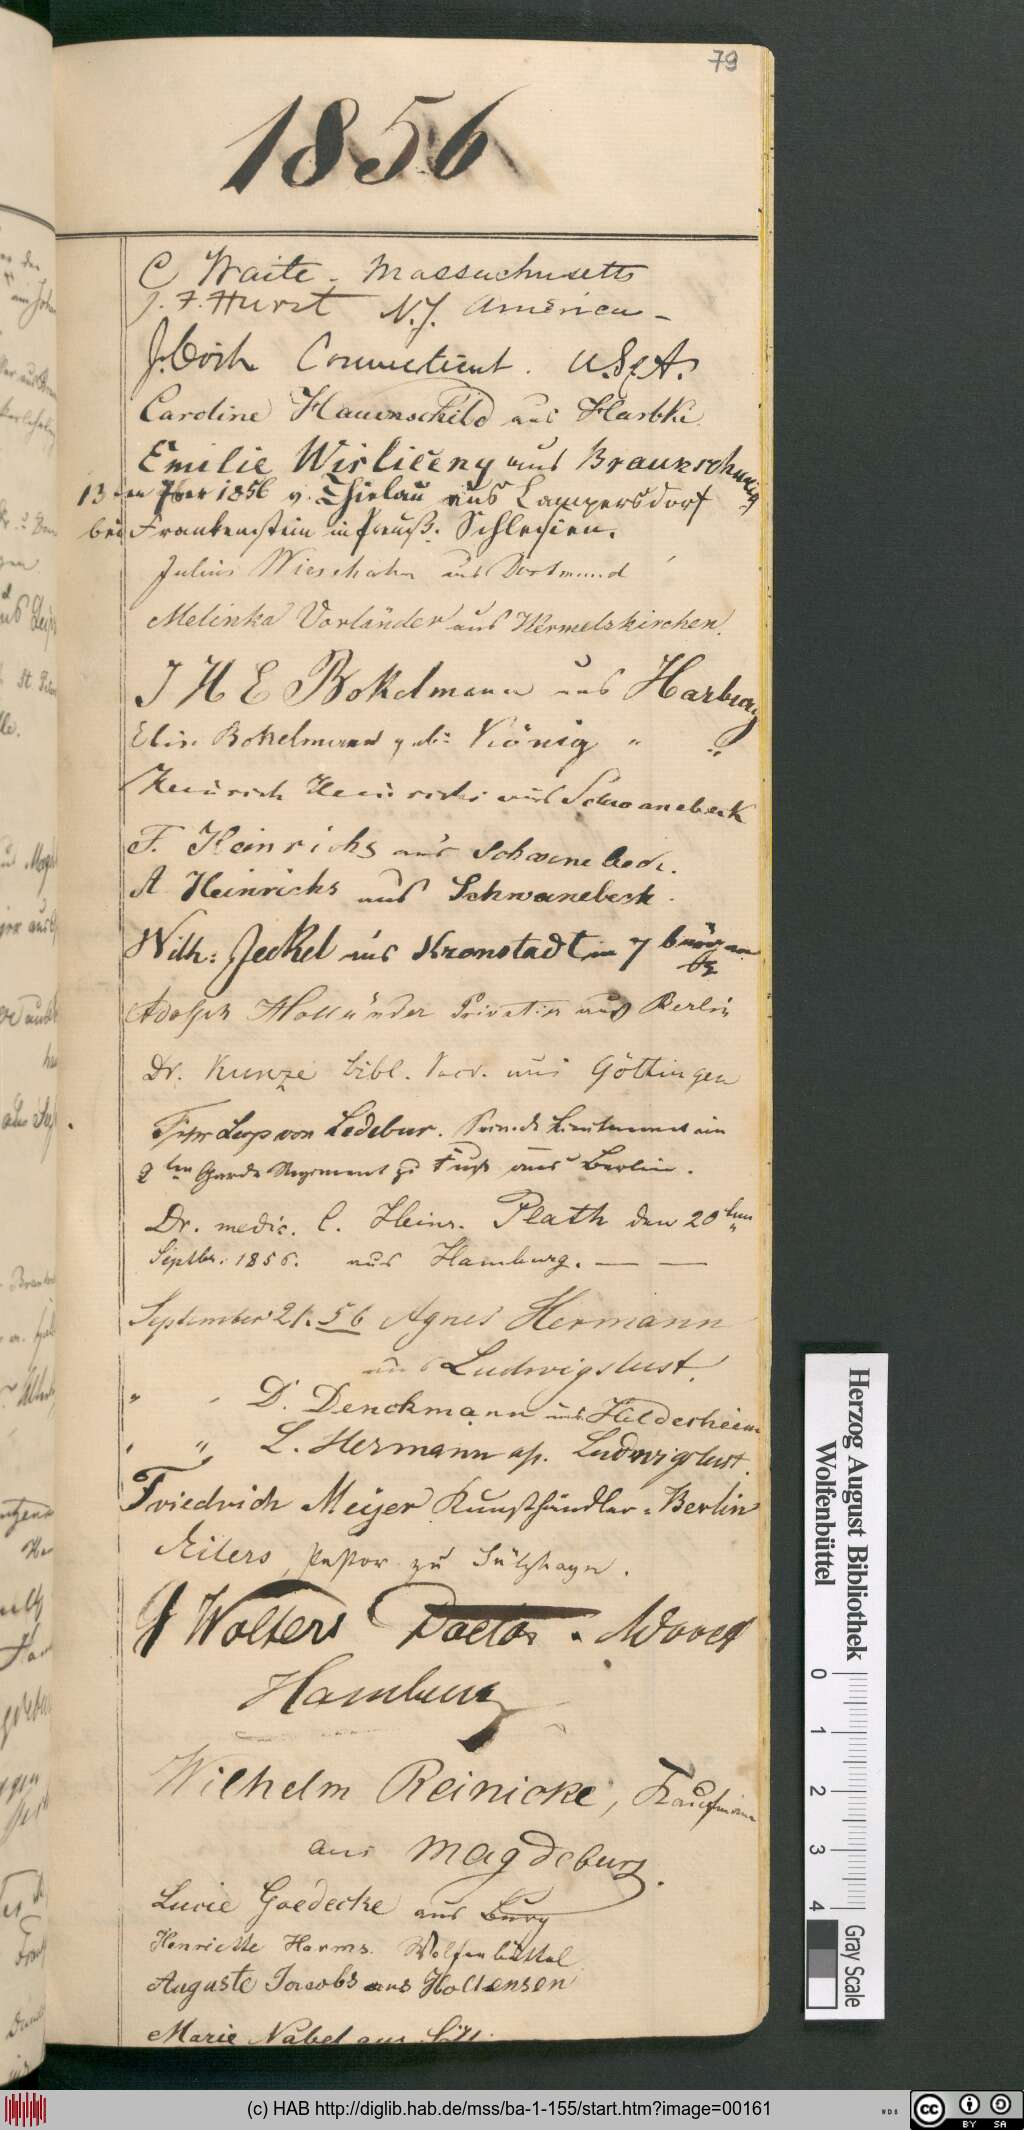 79
1856
C Waite - Massachusetts
J. F. Hurst N.J. America -
Connecticut. U.S.A.
Caroline Hauenschild aus Harbke
Emilie Wirliceny aus Braunschweig
13ten 7ber 1856 v. Thielau aus Lampersdorf
bei Frankenstein in Preuß. Schlesien.
Julius Wieschahn aus Dortmund
Melinka Vorländer aus Wermelskirchen.
J H E Bokelmann aus Harburg
Elise Bokelmann geb: König " "
Heinrich Heinrichs aus Schwanebeck
F. Heinrichs aus Schwanebeck.
A Heinrichs aus Schwanebeck.
Wilh: Jeckel aus Kronstadt in 7 bürgen
Adolph Holländer Privatier aus Berlin
Dr. Kunze Bibl. Secr. aus Göttingen
von Ledebur. Seconde Lieutenant im
2ten Garde Regiment zu Fuß aus Berlin.
Dr. medic. C. Heinr. Plath den 20ten
Septbr. 1856. aus Hamburg. — —
September 21. 56 Agnes Hermann
aus Ludwigslust.
" " D. Denckmann aus Hildesheim
" " L. Hermann Ludwigslust.
Friedrich Meyer Kunsthändler - Berlin
Eilers, Pastor zu Sülzhayn.
Wolters Doctor
Hamburg
Wilhelm Reinicke, Kaufmann
aus Magdeburg.
Lucie Goedecke aus Burg
Henriette Harms. Wolfenbüttel
Auguste Jacobs aus Holtensen
Marie Nabel aus
Herzog August Bibliothek
Wolfenbüttel
0 1 2 3 4
Gray Scale
(c) HAB http://diglib.hab.de/mss/ba-1-155/start.htm?image=00161
WDB
cc BY SA